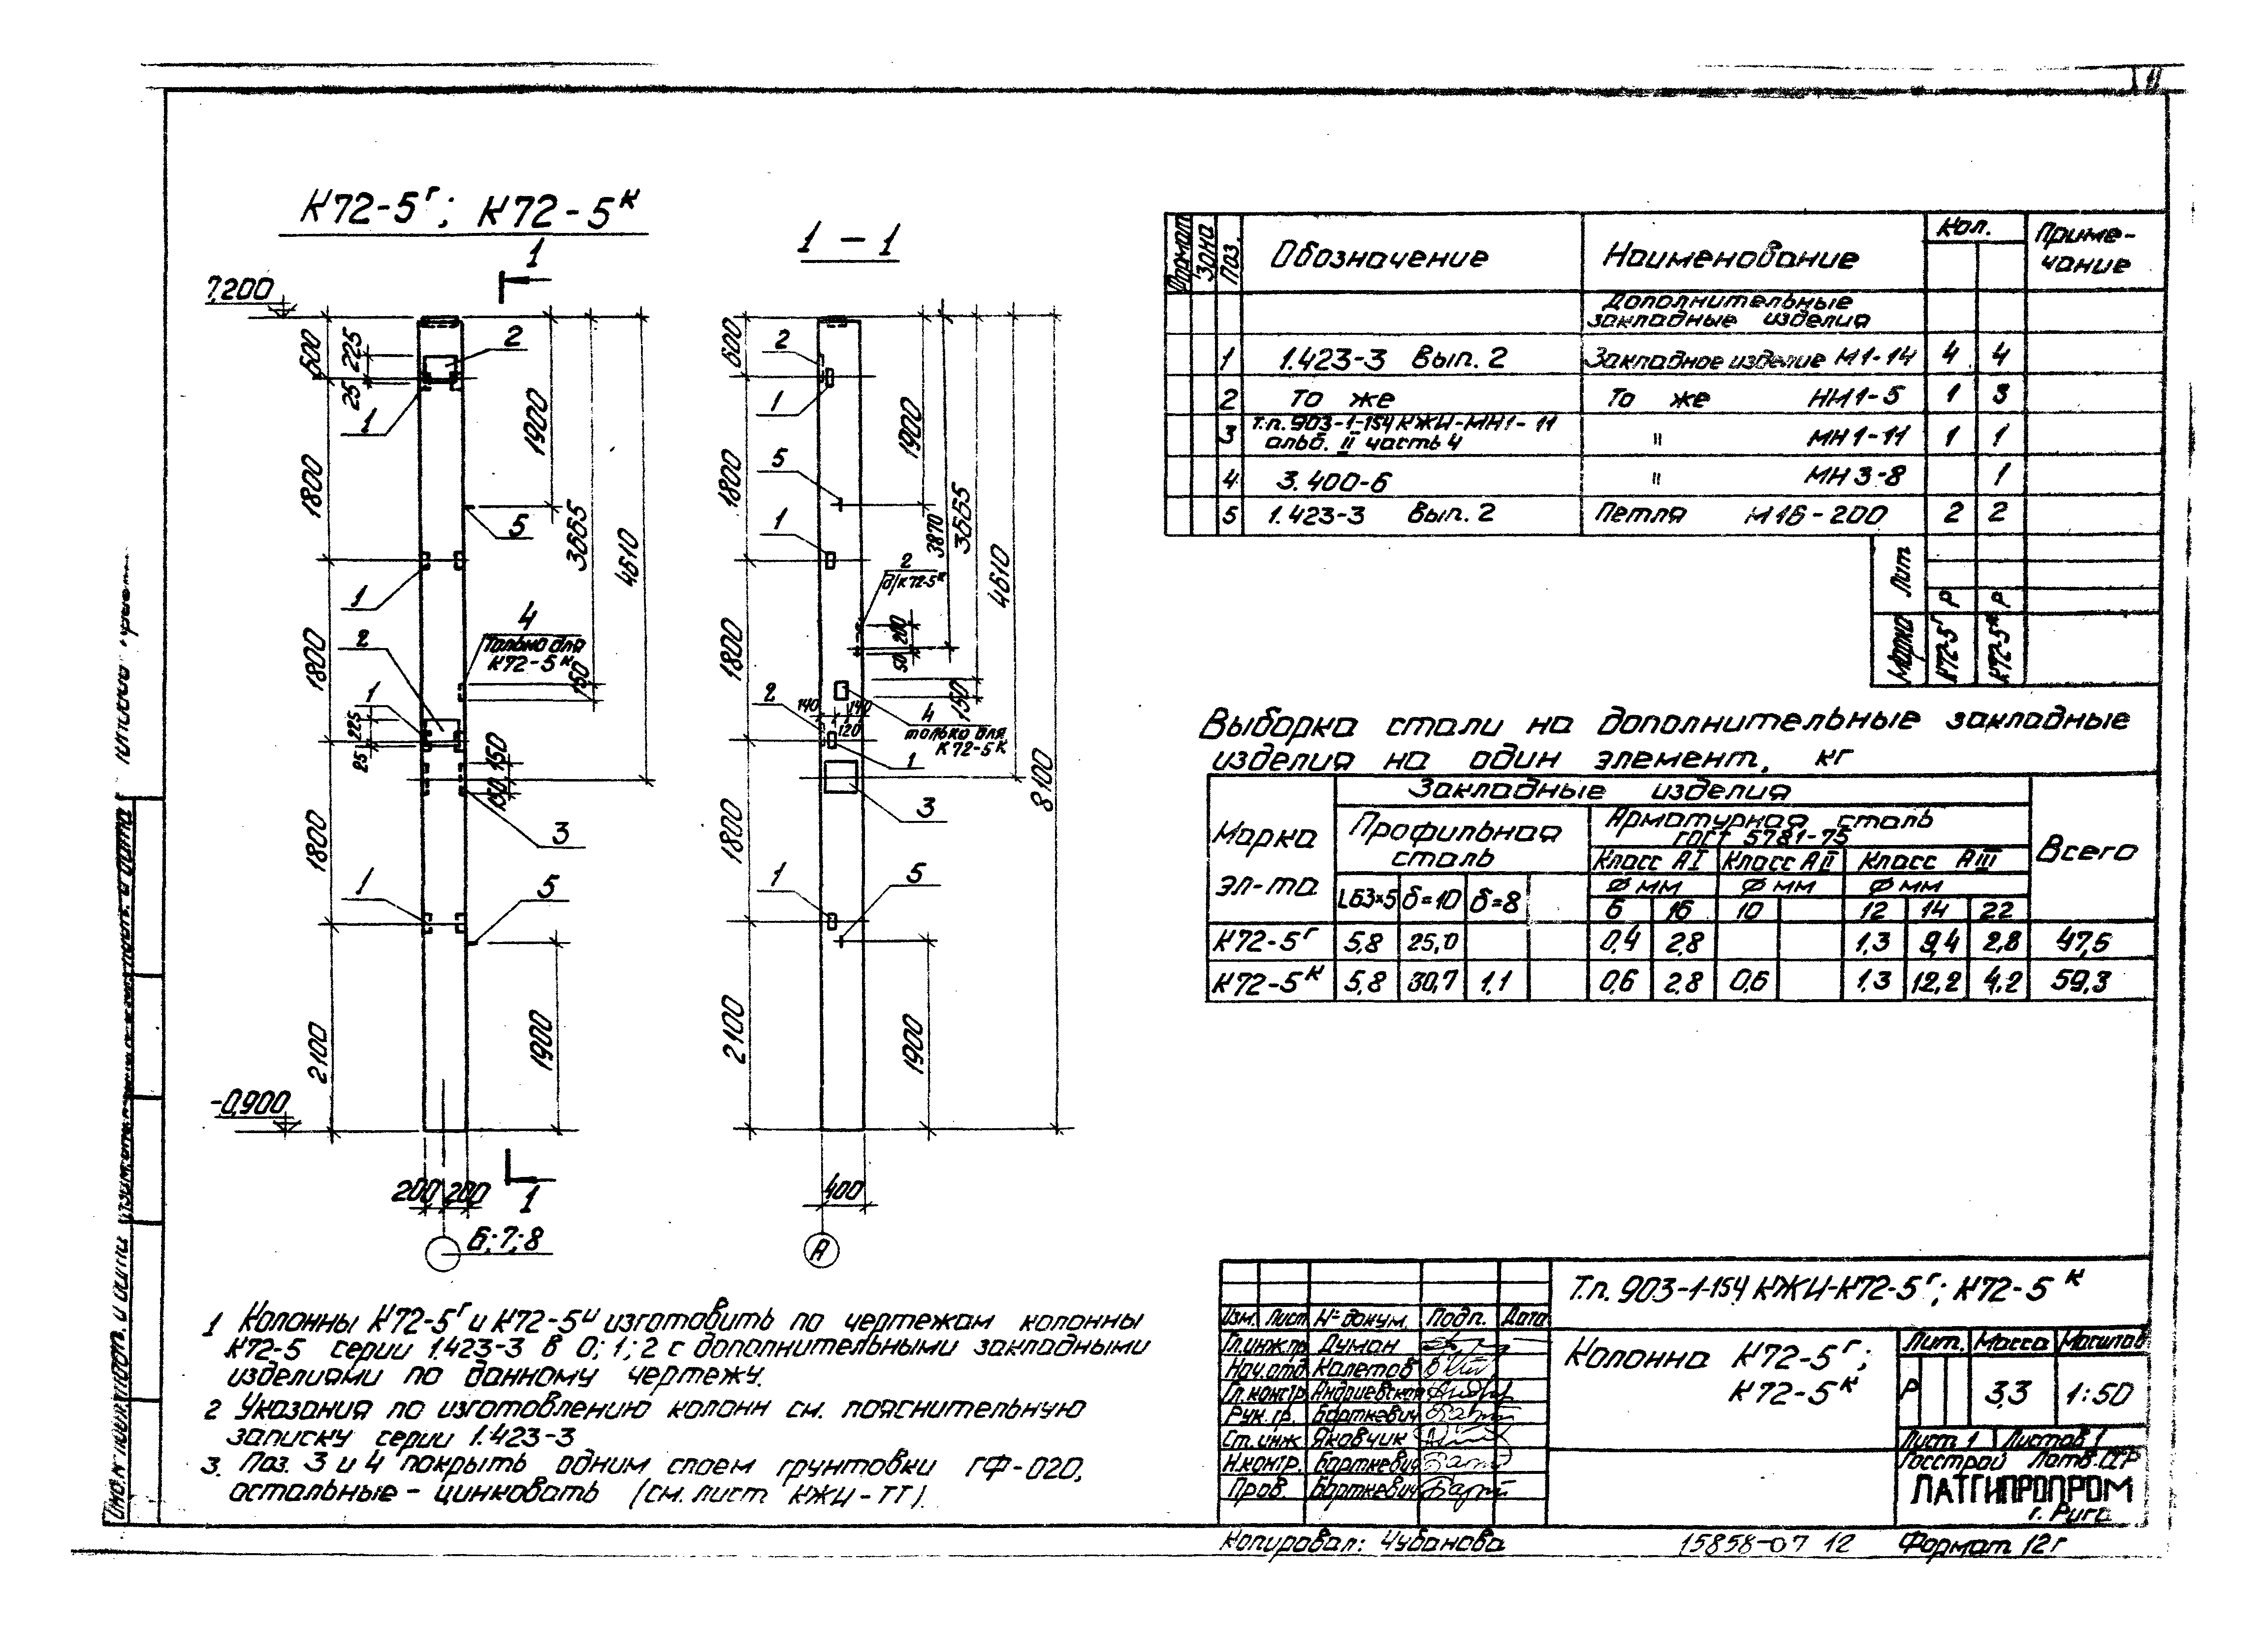 11
К72-5г; К72-5к
1
1 – 1
7,200
600
225
25
2
1
1900
3665
4610
1800
5
1
4
только для
К72-5к
150
1800
2
1
225
25
150
150
3
1800
1
5
2100
1900
-0,900
200 200
1
6; 7; 8
600
2
1
1900
1800
5
1
3870
3665
4610
2
д/К72-5к
200
50
1800
150
2
140 140
120
4
только для
К72-5к
1
3
8100
1800
1
5
2100
1900
400
А
1 Колонны К72-5г и К72-5к изготовить по чертежам колонны
К72-5 серии 1.423-3 в 0; 1; 2 с дополнительными закладными
изделиями по данному чертежу.
2 Указания по изготовлению колонн см. пояснительную
записку серии 1.423-3
3. Поз. 3 и 4 покрыть одним слоем грунтовки ГФ-020,
остальные – цинковать (см. лист КЖИ-ТТ).
Формат Зона Поз. Обозначение Наименование Кол. Приме-
чание
Дополнительные
закладные изделия
1 1.423-3 Вып. 2 Закладное изделие М1-14 4 4
2 То же То же НМ1-5 1 3
3 Т.п. 903-1-154 КЖИ-МН1-11
альб. II часть 4 " МН1-11 1 1
4 3.400-6 " МН3-8 1
5 1.423-3 Вып. 2 Петля М16-200 2 2
Лит Р Р
Марка К72-5г К72-5к
Выборка стали на дополнительные закладные
изделия на один элемент, кг
Марка
эл-та
Закладные изделия
Всего
Профильная
сталь
Арматурная сталь
ГОСТ 5781-75
Класс АI Класс АII Класс АIII
Ø мм Ø мм Ø мм
L63×5 δ=10 δ=8 6 16 10 12 14 22
К72-5г 5,8 25,0 0,4 2,8 1,3 9,4 2,8 47,5
К72-5к 5,8 30,7 1,1 0,6 2,8 0,6 1,3 12,2 4,2 59,3
Т.п. 903-1-154 КЖИ-К72-5г; К72-5к
Изм. Лист № докум. Подп. Дата
Гл.инж.пр. Думан
Нач.отд. Калетов
Гл.констр. Андриевская
Рук.гр. Барткевич
Ст.инж. Яковчик
Н.контр. Барткевич
Пров. Барткевич
Колонна К72-5г;
К72-5к
Лит. Масса Масштаб
Р 3,3 1:50
Лист 1 Листов 1
Госстрой Латв.ССР
ЛАТГИПРОПРОМ
г. Рига
Копировал: Чубанова
15858-07 12
Формат 12г